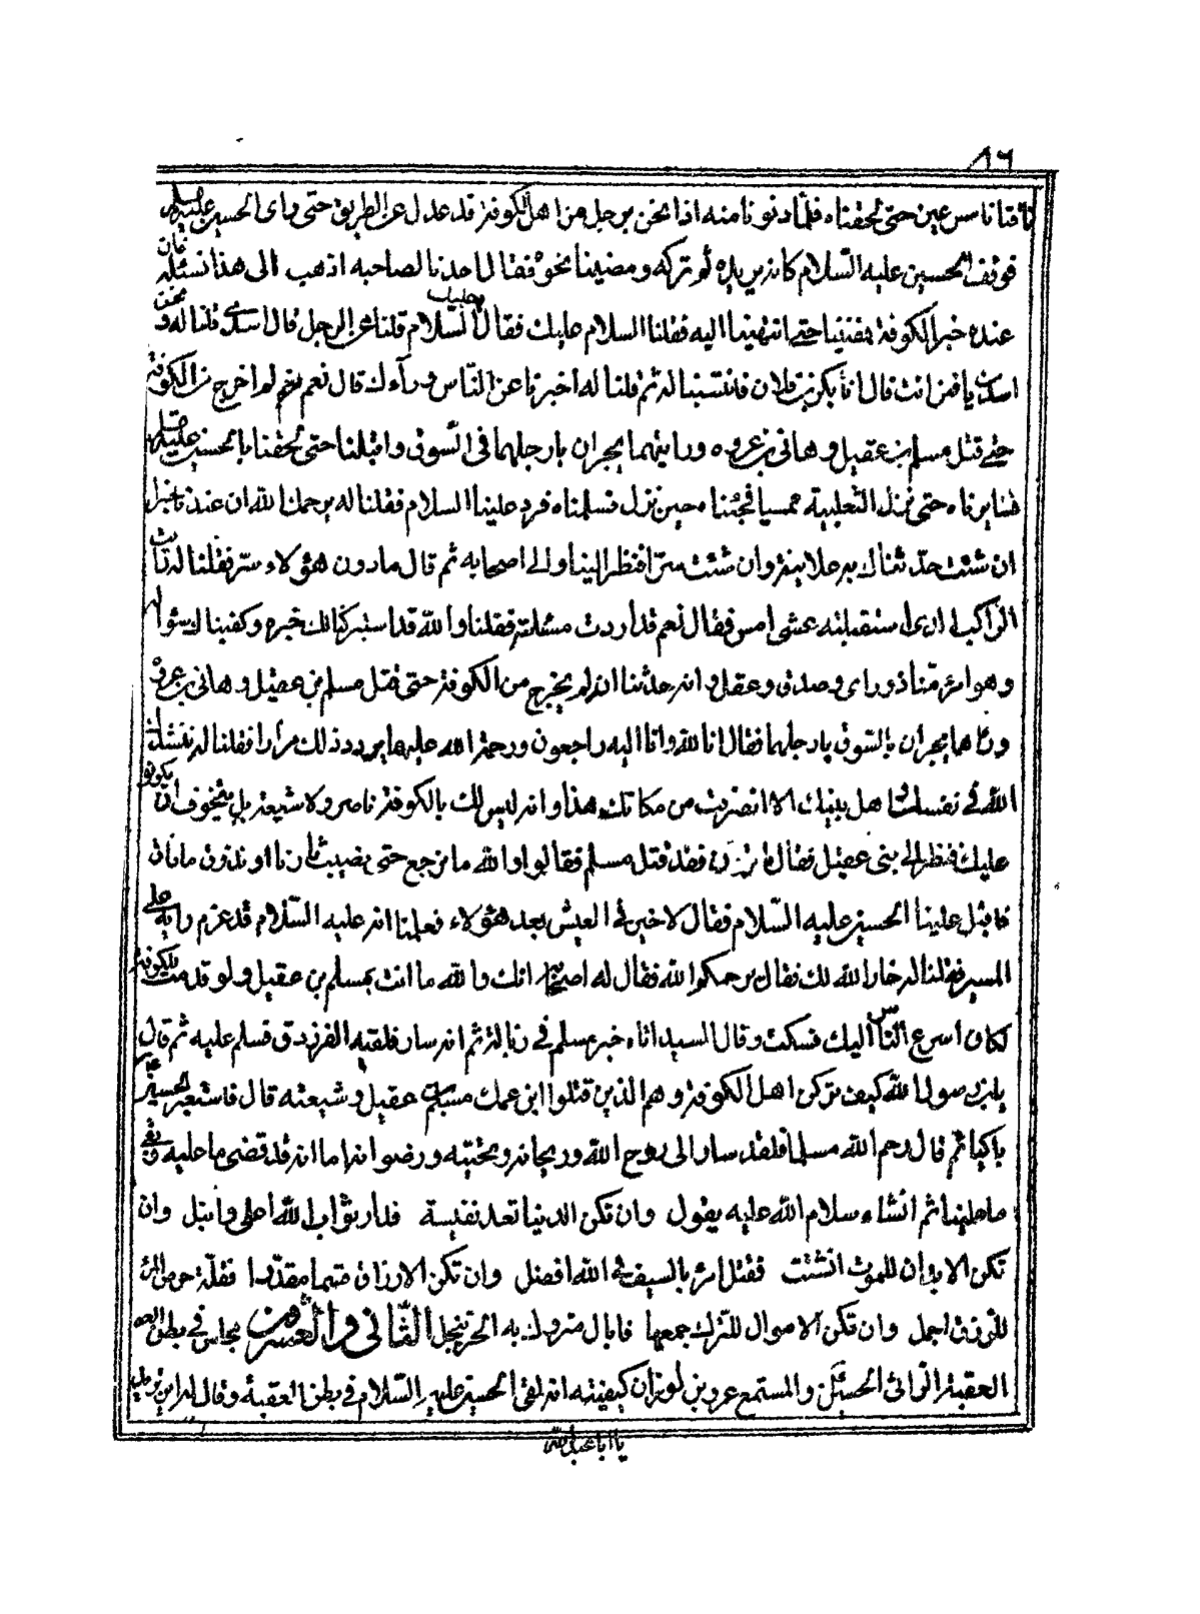 ٨٦
ناقتانا مسرعين حتى لحقناه فلما دنونا منه اذا نحن برجل من اهل الكوفة قد عدل عن الطريق حتى راى الحسين عليه السلام
فوقف الحسين عليه السلام كانه يريده ثم تركه ومضينا نحوه فقال احدنا لصاحبه اذهب الى هذا نسئله فان
عنده خبر الكوفة فمضينا حتى انتهينا اليه فقلنا السلام عليك فقال وعليك السلام قلنا من الرجل قال اسدى قلنا له ونحن
اسديان فمن انت قال انا بكر بن فلان فانتسبنا له ثم قلنا له اخبرنا عن الناس ورآءك قال نعم لم اخرج من الكوفة
حتى قتل مسلم بن عقيل وهانى بن عروه ورايتهما يجران بارجلهما فى السوق واقبلنا حتى لحقنا بالحسين عليه السلام
فسايرناه حتى نزل الثعلبية ممسيا فجئناه حين نزل فسلمناه فرد علينا السلام فقلنا له يرحمك الله ان عندنا خبرا
ان شئت حدثناك به علانية وان شئت سرا فنظر الينا والى اصحابه ثم قال ما دون هؤلاء ستر فقلنا له رايت
الراكب الذى استقبلته عشى امس فقال نعم قد اردت مسئلته فقلنا والله قد استبرئنا لك خبره وكفيناك سئواله
وهو امرء منا ذو راى وصدق وعقل وانه حدثنا انه لم يخرج من الكوفة حتى قتل مسلم بن عقيل وهانى بن عروة
وراهما يجران بالسوق بارجلهما فقال انا لله وانا اليه راجعون ورحمة الله عليهما يردد ذلك مرارا فقلنا له ننشدك
الله فى نفسك واهل بيتك الا انصرفت من مكانك هذا وانه ليس لك بالكوفة ناصر ولا شيعة بل نتخوف ان يكونوا
عليك فنظر الى بنى عقيل فقال ما ترون فقد قتل مسلم فقالوا والله ما نرجع حتى نصيب ثارنا او نذوق ما ذاق
فاقبل علينا الحسين عليه السلام فقال لا خير فى العيش بعد هؤلاء فعلمنا انه عليه السلام قد عزم رايه على
المسير فقلنا له خار الله لك فقال يرحمكم الله فقال له اصحابه انك والله ما انت بمسلم بن عقيل ولو قدمت الكوفة
لكان اسرع الناس اليك فسكت وقال السيد اتاه خبر مسلم فى زبالة ثم انه سار فلقيه الفرزدق فسلم عليه ثم قال
يابن رسول الله كيف تركن اهل الكوفة وهم الذين قتلوا ابن عمك مسلم بن عقيل وشيعته قال فاستعبر الحسين ع
باكيا ثم قال رحم الله مسلما فلقد سار الى روح الله وريحانه وتحيته ورضوانه اما انه قد قضى ما عليه وبقى
ما علينا ثم انشاء سلام الله عليه يقول وان تكن الدنيا تعد نفيسة فدار ثواب الله اعلى وانبل وان
تكن الابدان للموت انشئت فقتل امرء بالسيف فى الله افضل وان تكن الارزاق قسما مقدرا فقلة حرص المرء
للرزق اجمل وان تكن الاموال للترك جمعها فما بال متروك به الحر يبخل الثانى والعشرون مجلس فى بطن العقبة
العقبة الرائى الحسين والمستمع عمرو بن لوزان كيفيته انه لقى الحسين عليه السلام فى بطن العقبة وقال له اين تريد
يا ابا عبد الله